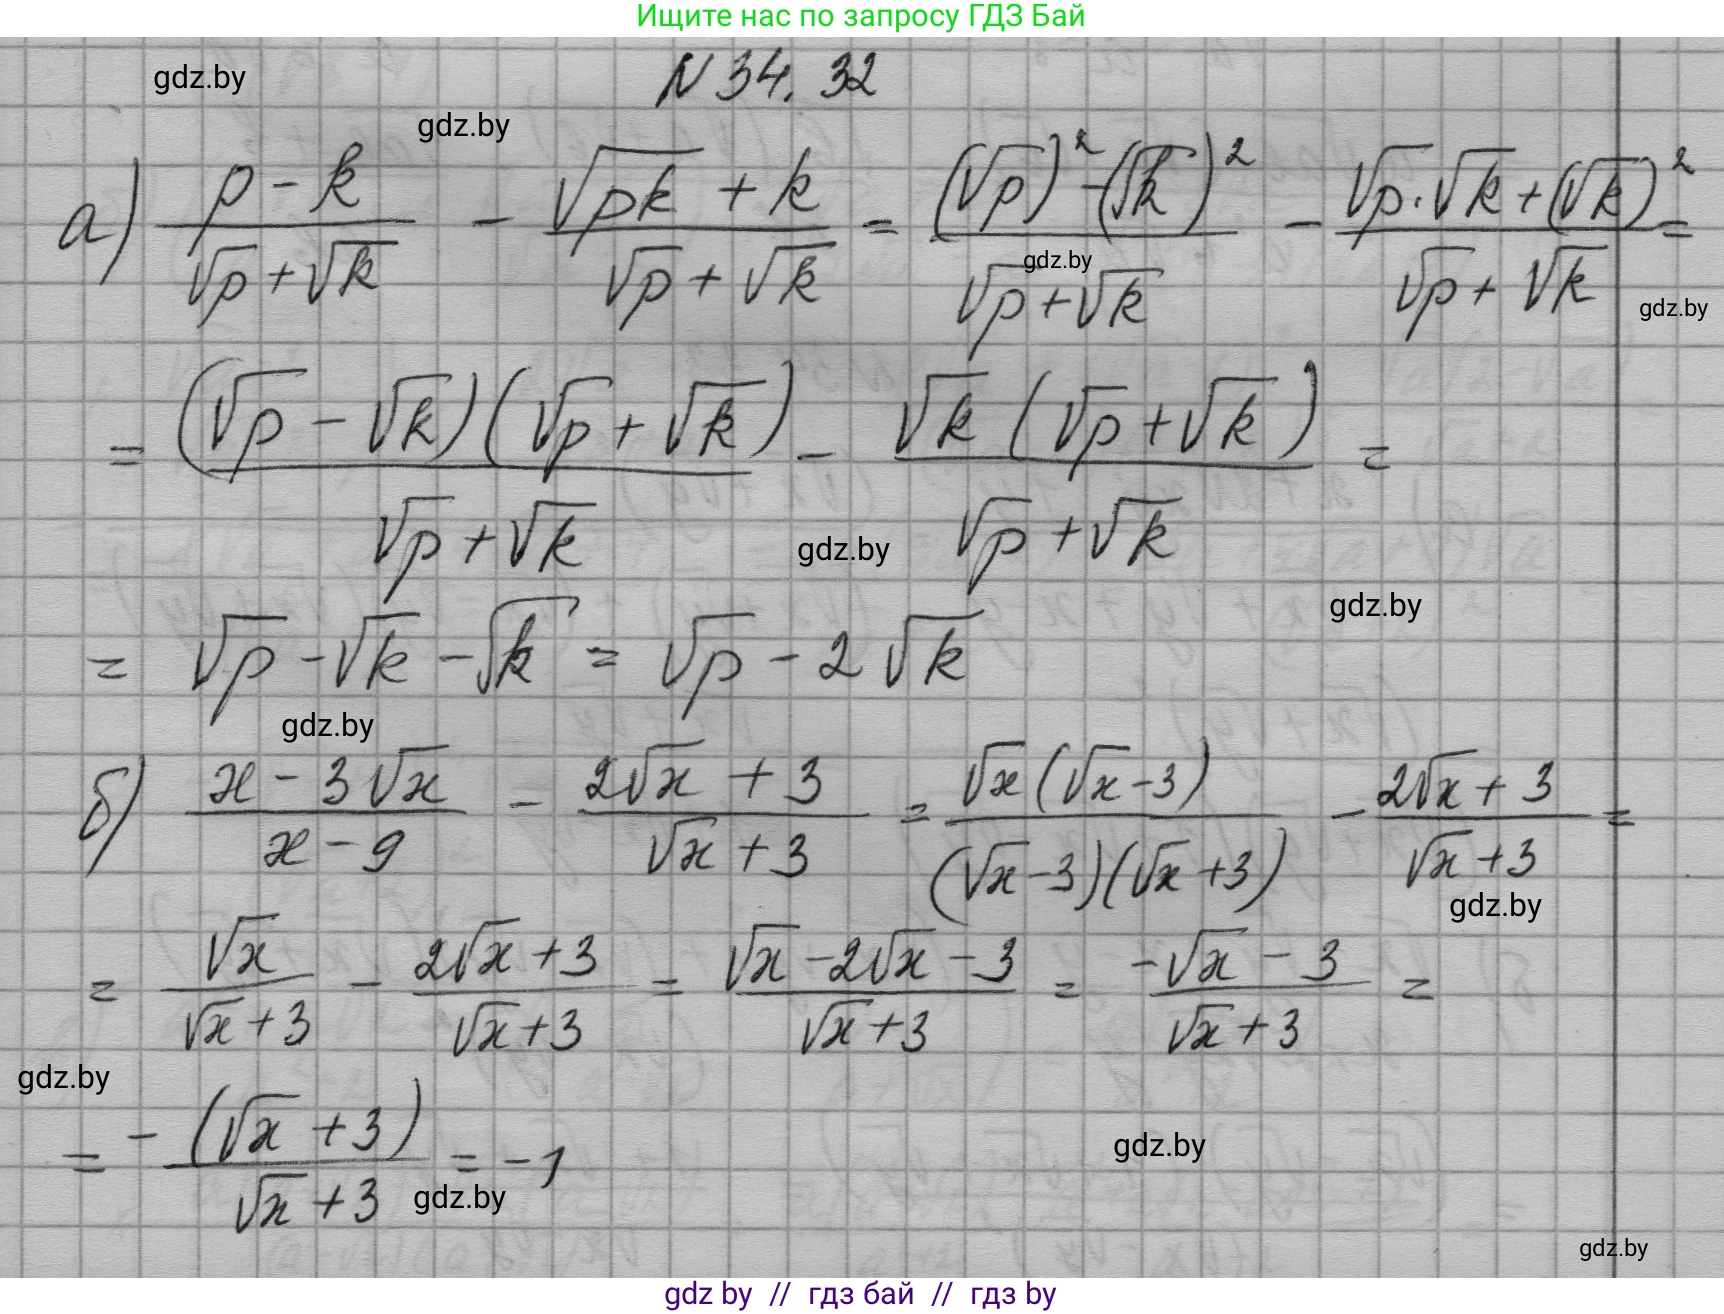 Ищите нас по запросу ГДЗ Бай
N 34. 32
gdz.by
gdz.by
а) (p - k)/(√p + √k) - (√pk + k)/(√p + √k) = ((√p)² - (√k)²)/(√p + √k) - (√p · √k + (√k)²)/(√p + √k) =
gdz.by
gdz.by
= ((√p - √k)(√p + √k))/(√p + √k) - (√k (√p + √k))/(√p + √k) =
gdz.by
gdz.by
= √p - √k - √k = √p - 2√k
gdz.by
б) (x - 3√x)/(x - 9) - (2√x + 3)/(√x + 3) = (√x(√x - 3))/((√x - 3)(√x + 3)) - (2√x + 3)/(√x + 3) =
gdz.by
= √x/(√x + 3) - (2√x + 3)/(√x + 3) = (√x - 2√x - 3)/(√x + 3) = (-√x - 3)/(√x + 3) =
gdz.by
= -(√x + 3)/(√x + 3) = -1
gdz.by
gdz.by
gdz.by
gdz by // гдз бай // гдз by